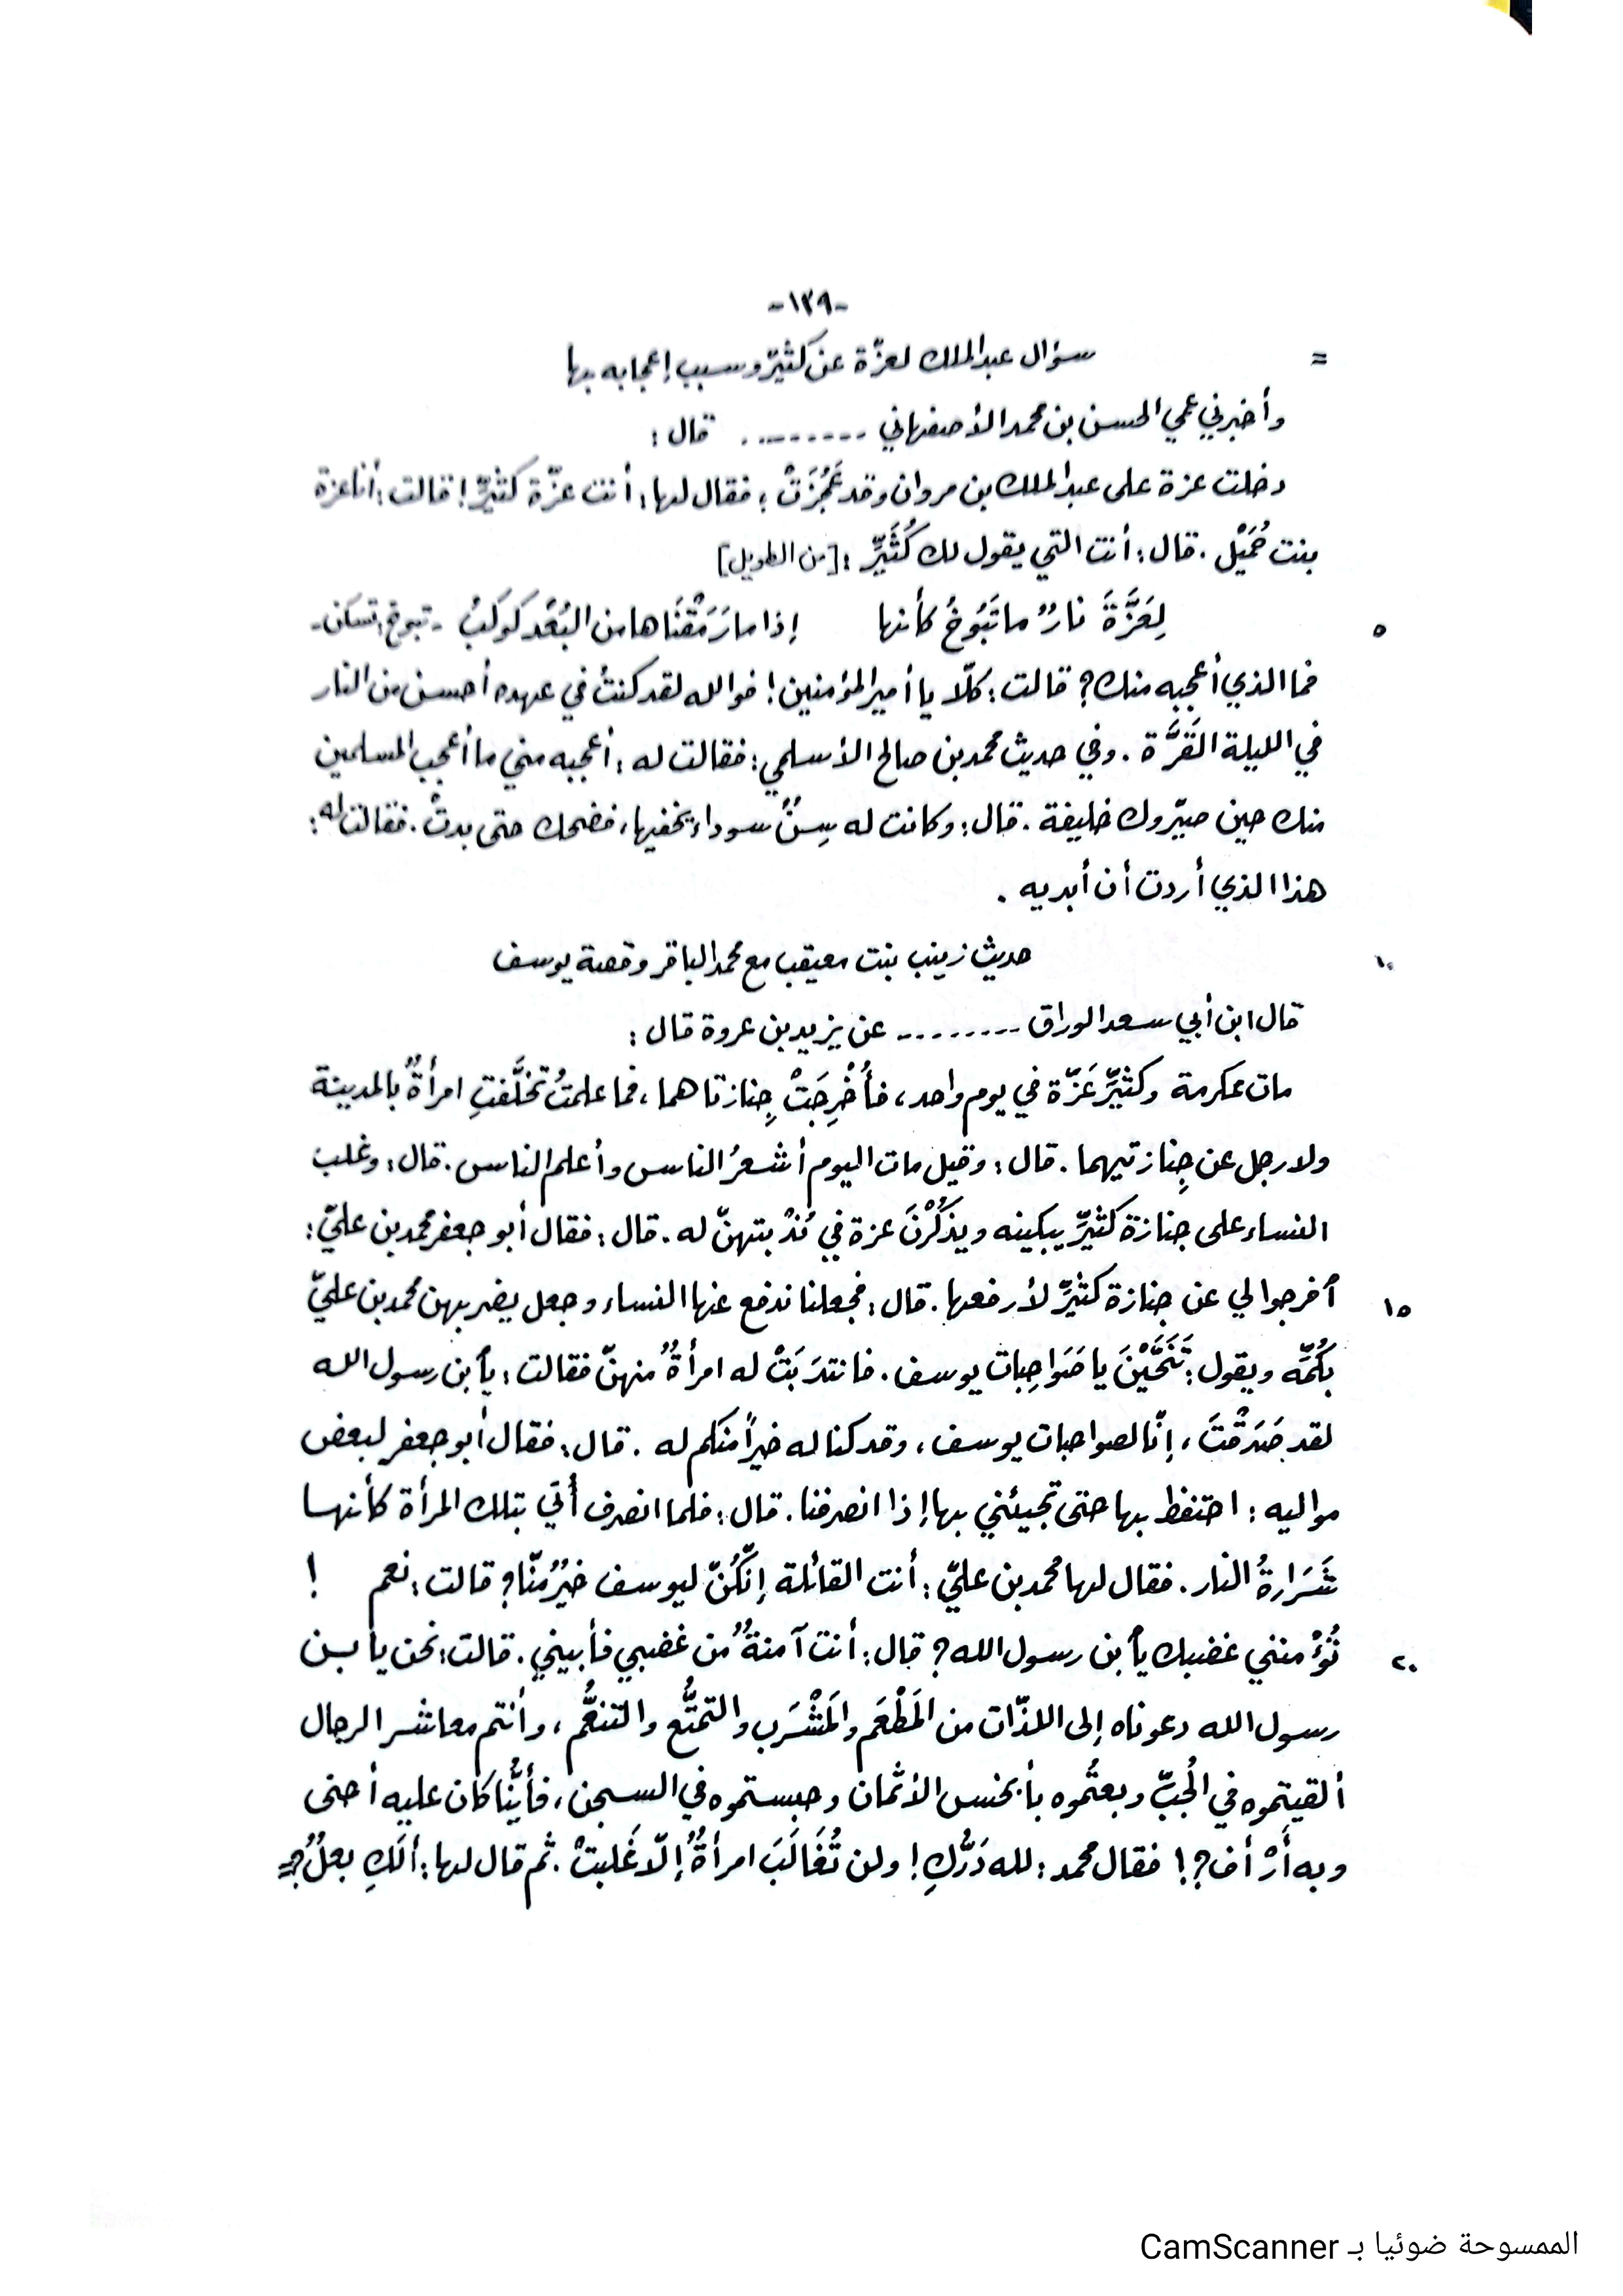 -١٣٩-
= سؤال عبد الملك لعزّة عن كثيّر وسبب إعجابه بها
وأخبرني عمي الحسن بن محمد الأصفهاني ......... قال :
دخلت عزة على عبد الملك بن مروان وقد عَجُزَتْ ؛ فقال لها : أنت عزّة كثيّرٍ ! قالت : أنا عزة
بنت حُمَيْل . قال : أنت التي يقول لك كُثَيِّرٌ : [من الطويل]
٥ لِعَزَّةَ نارٌ ما تَبُوخُ كأنها إذا ما رَمَقْنَاها من البُعْد كَوكَبُ - تبوخ : تسكن -
فما الذي أعجبه منك ؟ قالت : كلّا يا أمير المؤمنين ! فوالله لقد كنتُ في عهده أحسن من النار
في الليلة القَرَّة . وفي حديث محمد بن صالح الأسلمي : فقالت له : أعجبه مني ما أعجب المسلمين
منك حين صيّروك خليفة . قال : وكانت له سِنٌّ سوداء يخفيها ، فضحك حتى بدتْ . فقالت له :
هذا الذي أردت أن أبديه .
١٠ حديث زينب بنت معيقب مع محمد الباقر وقصة يوسف
قال ابن أبي سعد الوراق ......... عن يزيد بن عروة قال :
مات عكرمة وكثيِّر عَزّة في يوم واحد ، فأُخْرِجَتْ جِنازتاهما ، فما علمتُ تخلَّفتِ امرأةٌ بالمدينة
ولا رجل عن جِنازتيهما . قال : وقيل مات اليوم أشعرُ الناس وأعلم الناس . قال : وغلب
النساء على جنازة كثيِّر يبكينه ويذكُرْنَ عزة في نُدْبتهنّ له . قال : فقال أبو جعفر محمد بن عليّ :
١٥ أفرجوا لي عن جنازة كثيِّر لأرفعها . قال : فجعلنا ندفع عنها النساء وجعل يضربهن محمد بن عليّ
بكُمّه ويقول : تَنَحَّيْنَ يا صَوَاحِبات يوسف . فانتدَبَتْ له امرأةٌ منهنّ فقالت : يأبن رسول الله
لقد صَدَقْتَ ، إنّا لصواحبات يوسف ، وقد كنا له خيراً منكم له . قال : فقال أبو جعفر لبعض
مواليه : احتفظ بها حتى تجيئني بها إذا انصرفنا . قال : فلما انصرف أُتي بتلك المرأة كأنها
شَرَارةُ النار . فقال لها محمد بن عليّ : أنت القائلة إنّكُنّ ليوسف خيرٌ منّا ؟ قالت : نعم !
٢٠ تُؤْمنني غضبك يأبن رسول الله ؟ قال : أنت آمنةٌ من غضبي فأبيني . قالت : نحن يابن
رسول الله دعوناه إلى اللذّات من المَطْعَم والمَشْرَب والتمتُّع والتنعُّم ، وأنتم معاشر الرجال
ألقيتموه في الجُبّ وبعتُموه بأبخس الأثمان وحبستموه في السجن ، فأيُّنا كان عليه أحنى
وبه أَرْأف ؟! فقال محمد : لله دَرُّكِ ! ولن تُغَالَبَ امرأةٌ إلّا غَلبتْ . ثم قال لها : ألَكِ بعلٌ ؟ =
الممسوحة ضوئيا بـ CamScanner